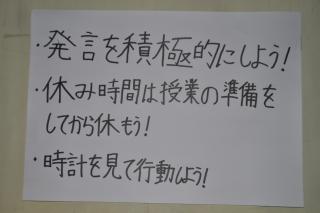 ・発言を積極的にしよう!
・休み時間は授業の準備を
してから休もう!
・時計を見て行動しよう!